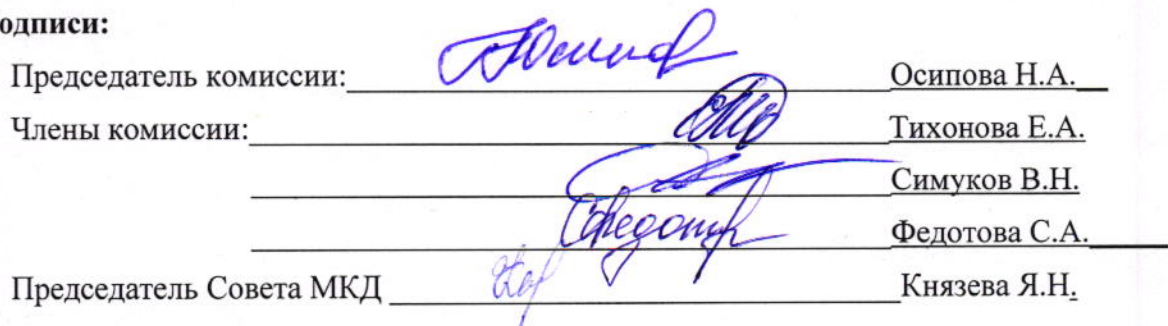 одписи:
Председатель комиссии: Осипова Н.А.
Члены комиссии: Тихонова Е.А.
Симуков В.Н.
Федотова С.А.
Председатель Совета МКД Князева Я.Н.